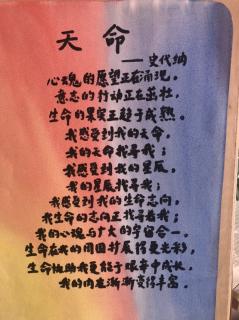 天 命
—— 史代纳
心魂的愿望正在涌现，
意志的行动正在茁壮，
生命的果实正趋于成熟。
我感受到我的天命，
我的天命找寻我；
我感受到我的星辰，
我的星辰找寻我；
我感受到我的生命志向，
我生命的志向正找寻着我；
我的心魂与广大的宇宙合一。
生命在我的周围扩展得更光彩，
生命协助我更能于艰辛中成长，
我的内在渐渐变得丰富。